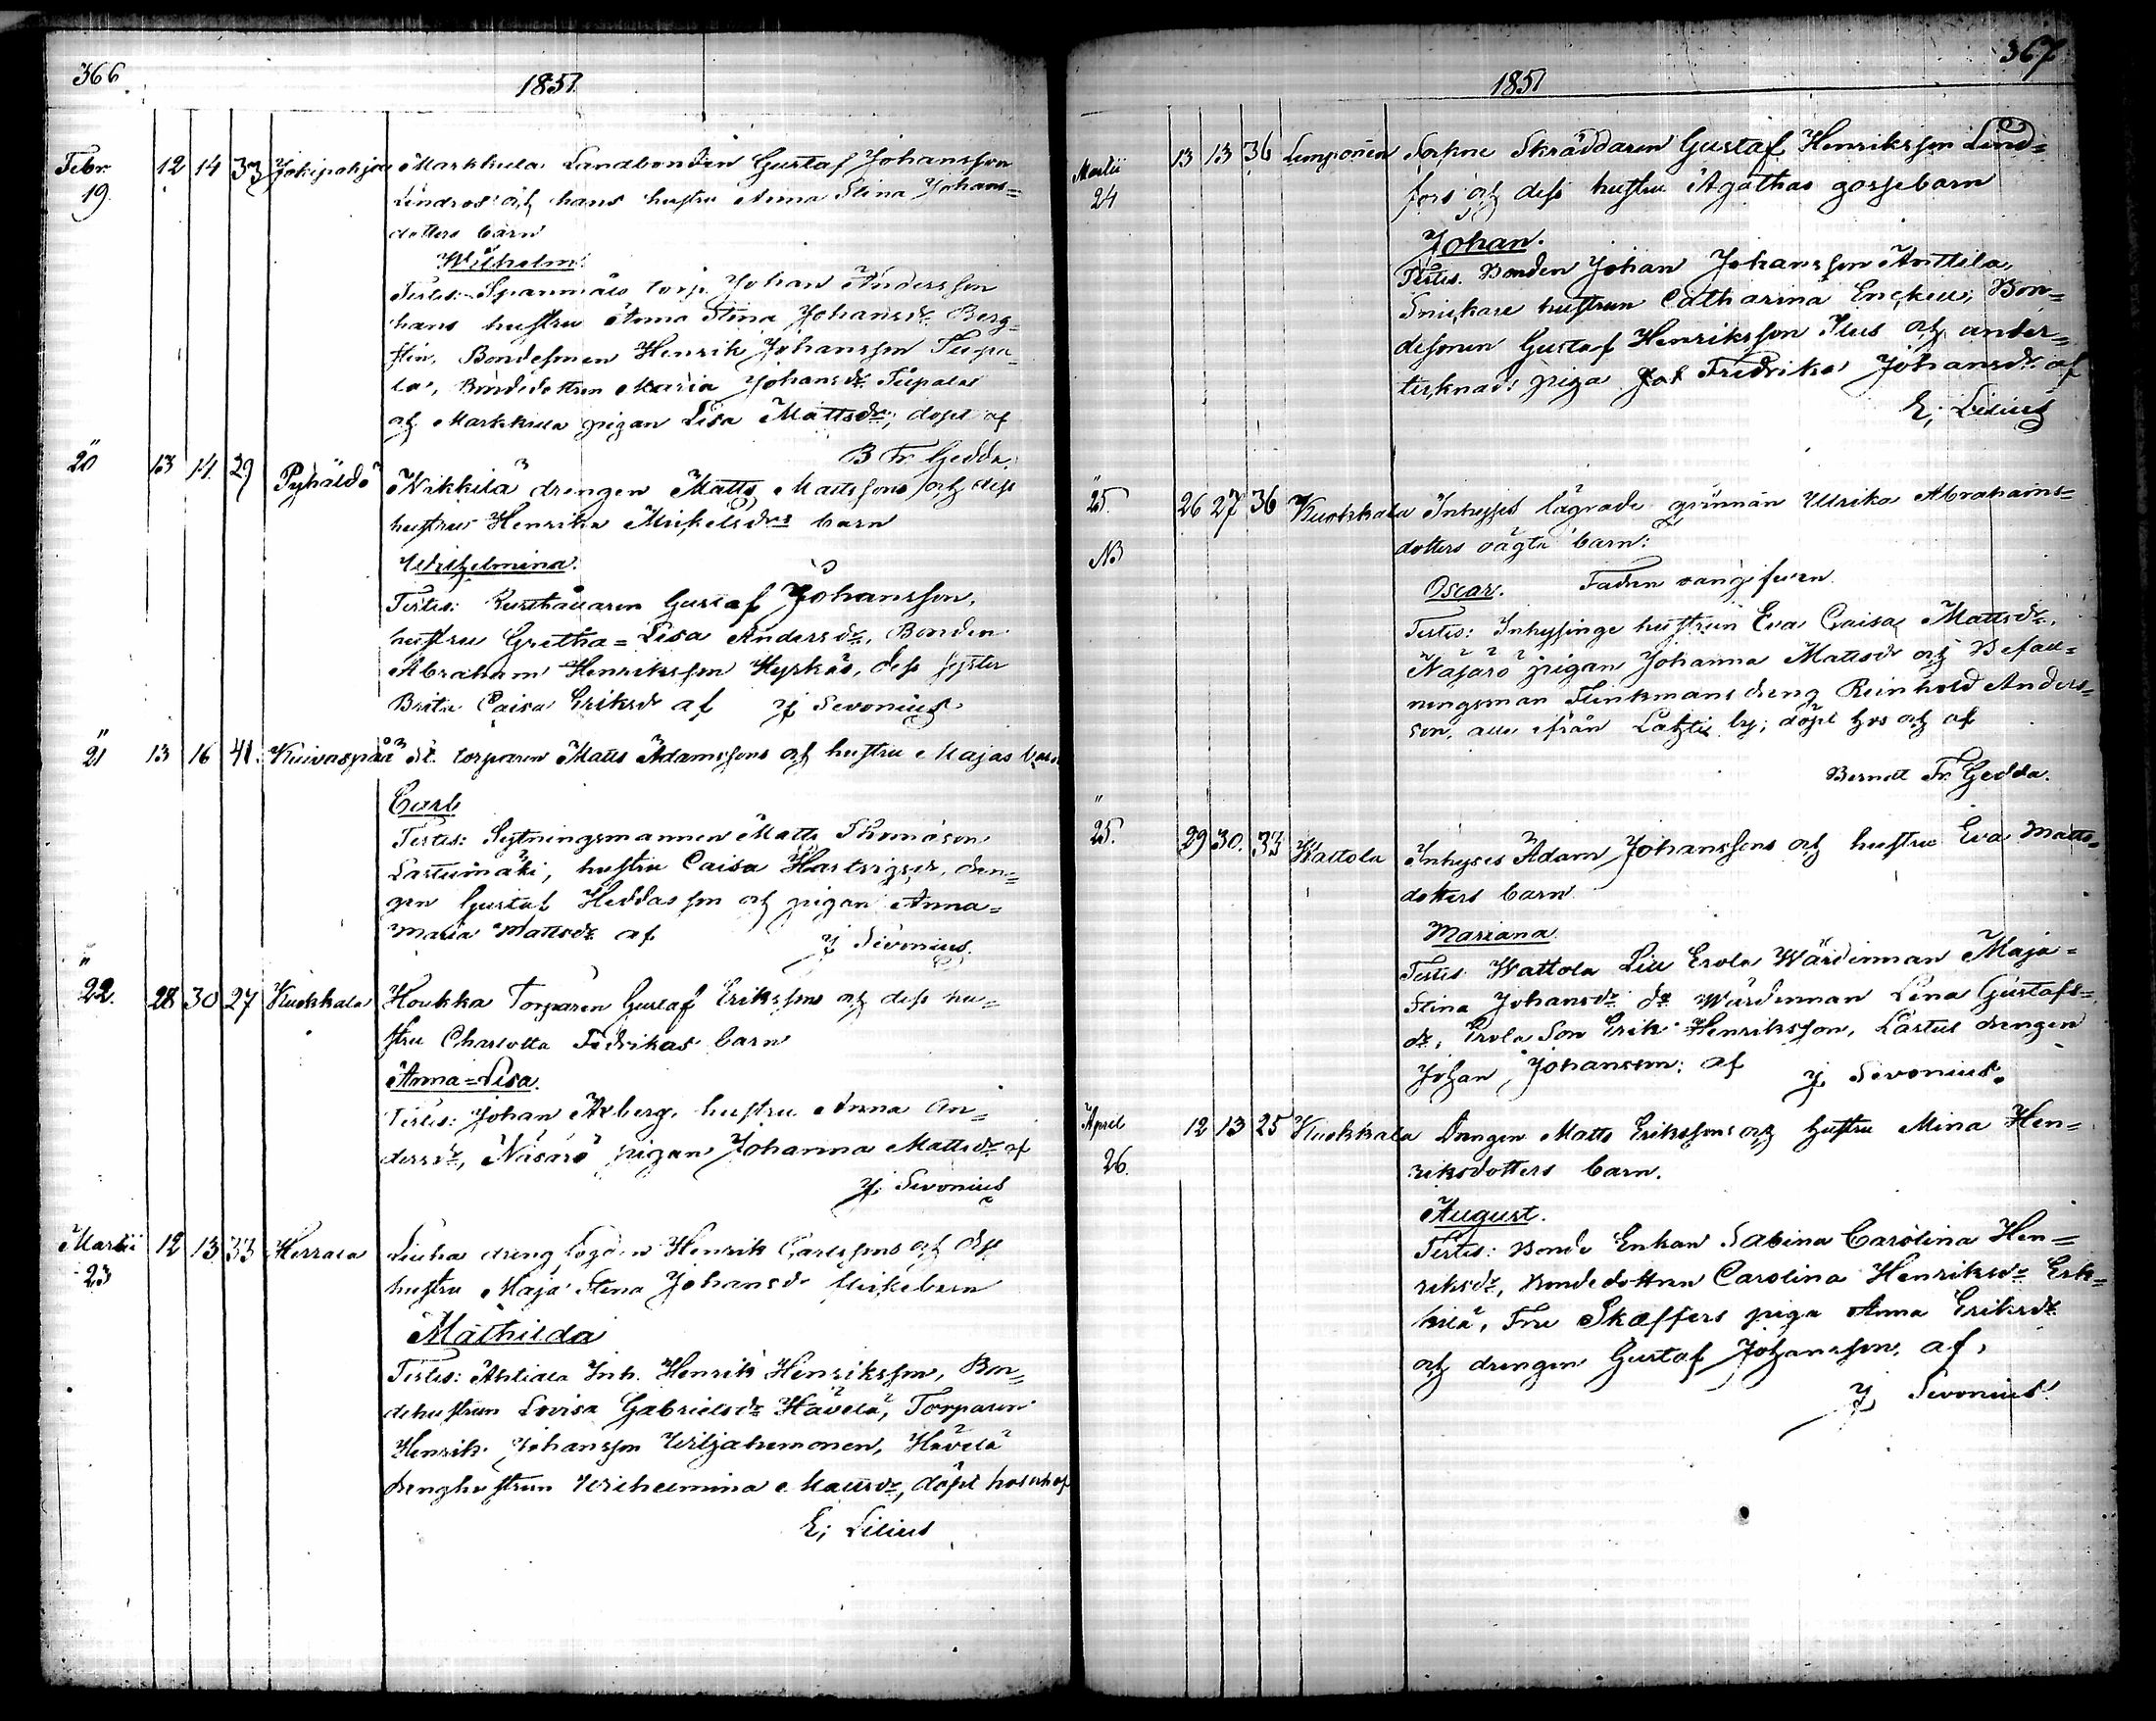 366
1851
Febr. 19. 12 14 33 Jokipohja Markkula Landbonden Gustaf Johansson
Lindros och hans hustru Anna Stina Johans=
dotters barn
Wilhelm.
Testes: Spanmäs torp. Johan Andersson
hans hustru Anna Stina Johansdr Berg=
Bondesonen Henrik Johansson Seppä=
lä, Bondedottren Maria Johansdr
och Markkula pigan Lisa Mattsdr, döpt af
B Fr Gedda.
" 20 13 14 29 Nikkilä drengen Matts Mattssons och dess
hustru Henrika Mickelsdrs barn
Wilhelmina.
Testes: Gustaf Johansson,
hustru Gretha=Lisa Andersdr, Bonden
Abraham Henriksson Hyrkäs, dess syster
Brita Caisa Eriksdr af J Sevonius
" 21 13 16 41. torparen Matts Adamssons och hustru Majas barn
Carl
Testes: Sytningsmannen Matts Thomasson
Lartumäki, hustru Caisa dren=
gen Gustaf Heddasson och pigan Anna=
Maria Mattsdr af J Sevonius.
" 22. 28 30 27 Kuckkala Houkka Torparen Gustaf Erikssons och dess hu=
stru Charlotta Fedrikas barn
Anna=Lisa.
Testes: Johan Åberg, hustru Anna An=
dersdr, Näsärö pigan Johanna Mattsdr af
J. Sevonius
Martii 23 12 13 33 Herrala dreng Henrik Carlssons och dess
hustru Maja Stina Johansdr flickebarn
Mathilda
Testes: Ahtiala Inh. Henrik Henriksson, Bon=
dehustrun Lovisa Gabrielsdr Hävelä, Torparen
Henrik Johansson Hävelä
drenghustrun Wilhelmina Mattsdr, döpt hos och af
E; Lilius
367
1851
Martii 24 13 13 36 Lemponen Sockne Skräddaren Gustaf Henriksson Lind=
fors och dess hustru Agathas gossebarn
Johan.
Testes. Bonden Johan Johansson Anttila,
Snickare hustrun Catharina Enckell, Bon=
desonen Gustaf Henriksson och under=
tecknads piga Fredrika Johansdr af
E; Lilius
" 25. 26 27 36 Kuckkala Inhyses lägrade qvinnan Ulrika Abrahams=
NB dotters oägta barn:
Oscar. Fadren oangifven.
Testes: Inhysinge hustrun Eva Caisa Mattsdr,
Näsärö pigan Johanna Mattsdr och Befall=
ningsman Flinkmans dreng Reinhold Anders=
son, alla ifrån Lahtis by; döpt hos och af
Berndt Fr. Gedda.
" 25. 29 30. 33 Hattola Inhyses Adam Johanssons och hustru Eva Matts=
dotters barn
Mariana.
Testes Wattola Erola Wärdinnan Maja=
Stina Johansdr do Wärdinnan Lena Gustafs=
dr, Erola Son Erik Henriksson, Lartus drengen
Johan Johansson: af J. Sevonius.
April 26. 12 13 25 Kuckkala Drengen Matts Erikssons och hustru Mina Hen=
riksdotters barn.
August.
Testes: Bonde Enkan Sabina Carolina Hen=
riksdr, Bondedottren Carolina Henriksdr Erk=
kilä, Fru Skæffers piga Anna Eriksdr
och drengen Gustaf Johansson, af,
J Sevonius.